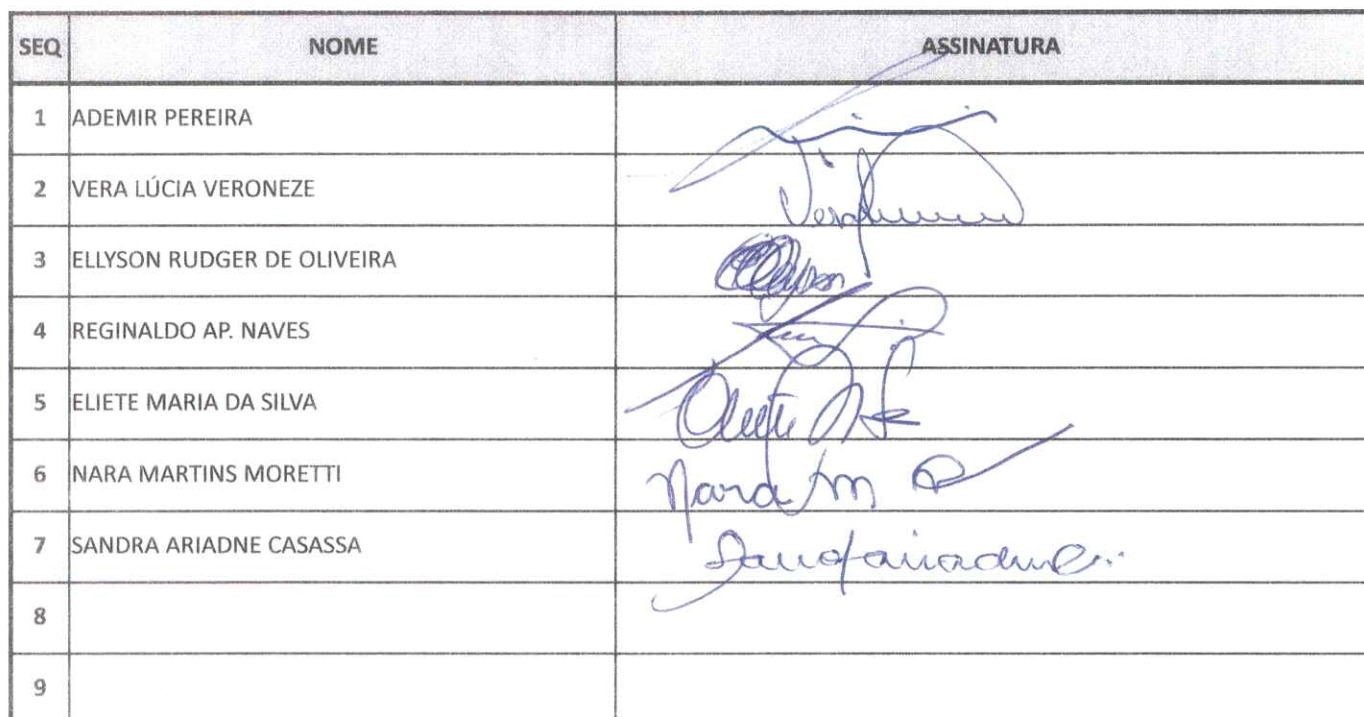 SEQ NOME ASSINATURA
1 ADEMIR PEREIRA
2 VERA LÚCIA VERONEZE
3 ELLYSON RUDGER DE OLIVEIRA
4 REGINALDO AP. NAVES
5 ELIETE MARIA DA SILVA
6 NARA MARTINS MORETTI Nara M
7 SANDRA ARIADNE CASASSA
8
9